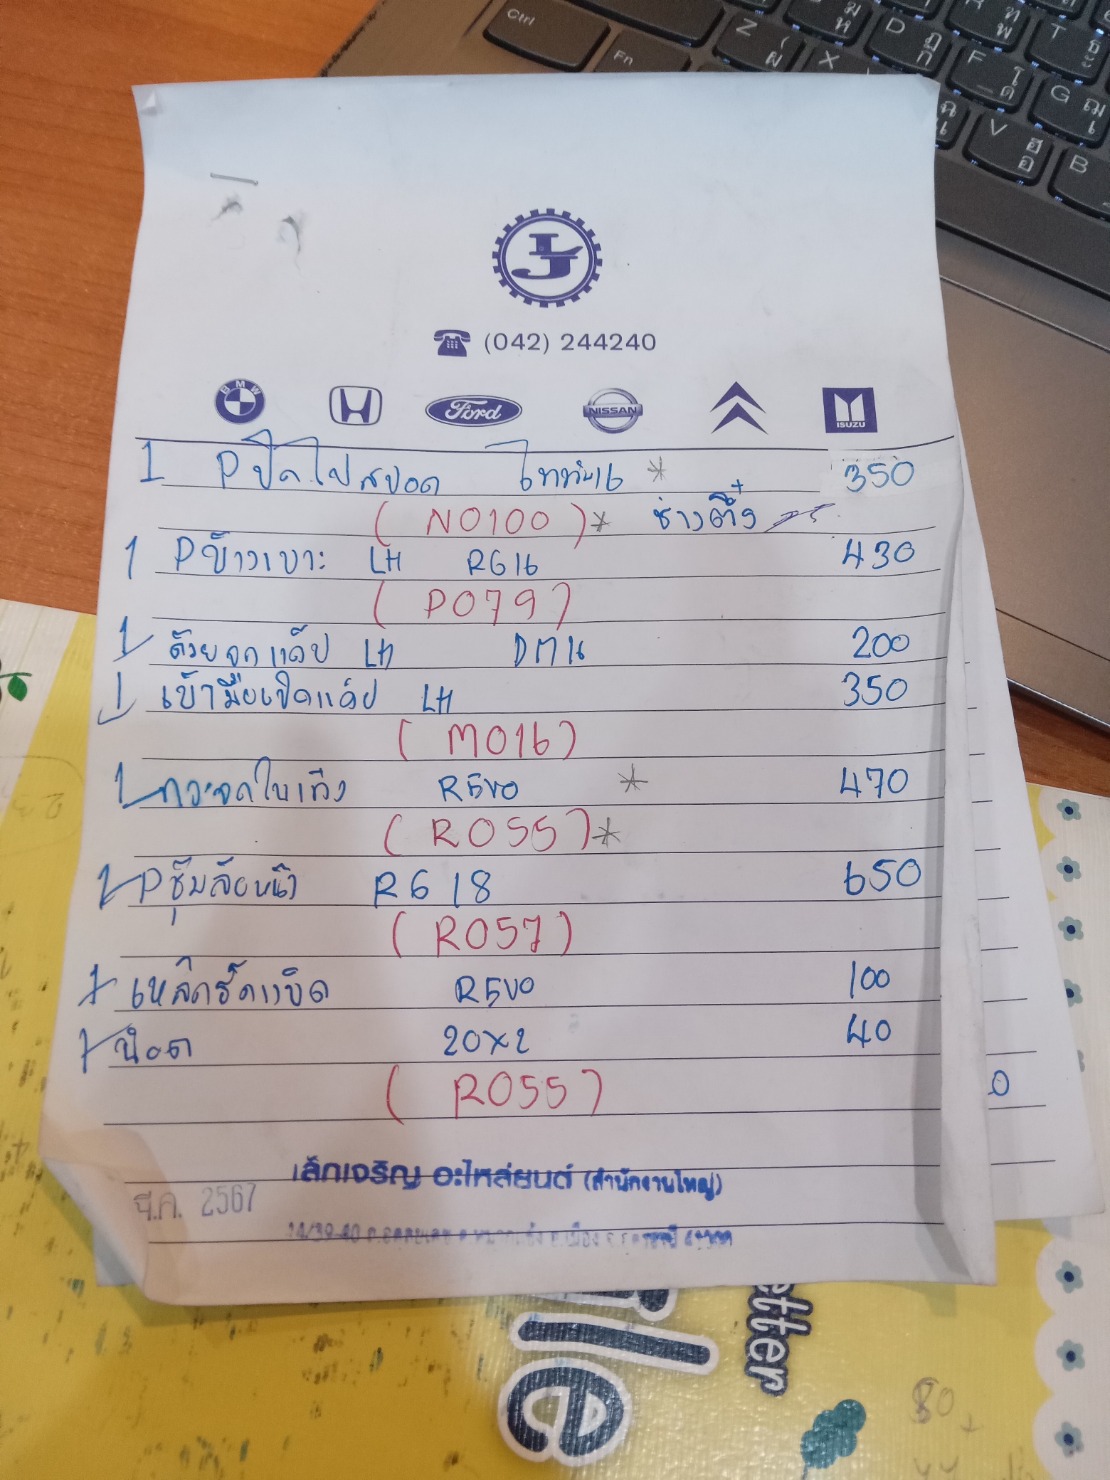 (042) 244240
BMW Ford NISSAN ISUZU
1 P ปิดไฟสปอต ไททัน16 * 350
(N0100)* ช่างตึ๋ง
1 P ข้างเบาะ LH RG16 430
(P079)
1 ด้วย LH 200
1 เบ้ามือเปิดแค๊ป LH 350
(M016)
1 กระจกใบเท้ง REVO * 470
(R055)*
1 P ซุ้มล้อหน้า RG18 650
(R057)
1 เหล็กรัดแบ็ต REVO 100
น๊อต 20x2 40
(R055)
เล็กเจริญ อะไหล่ยนต์ (สำนักงานใหญ่)
มี.ค. 2567
etter
le
80
Ctrl
Fn
Z
X
D
F
T
G
V
B